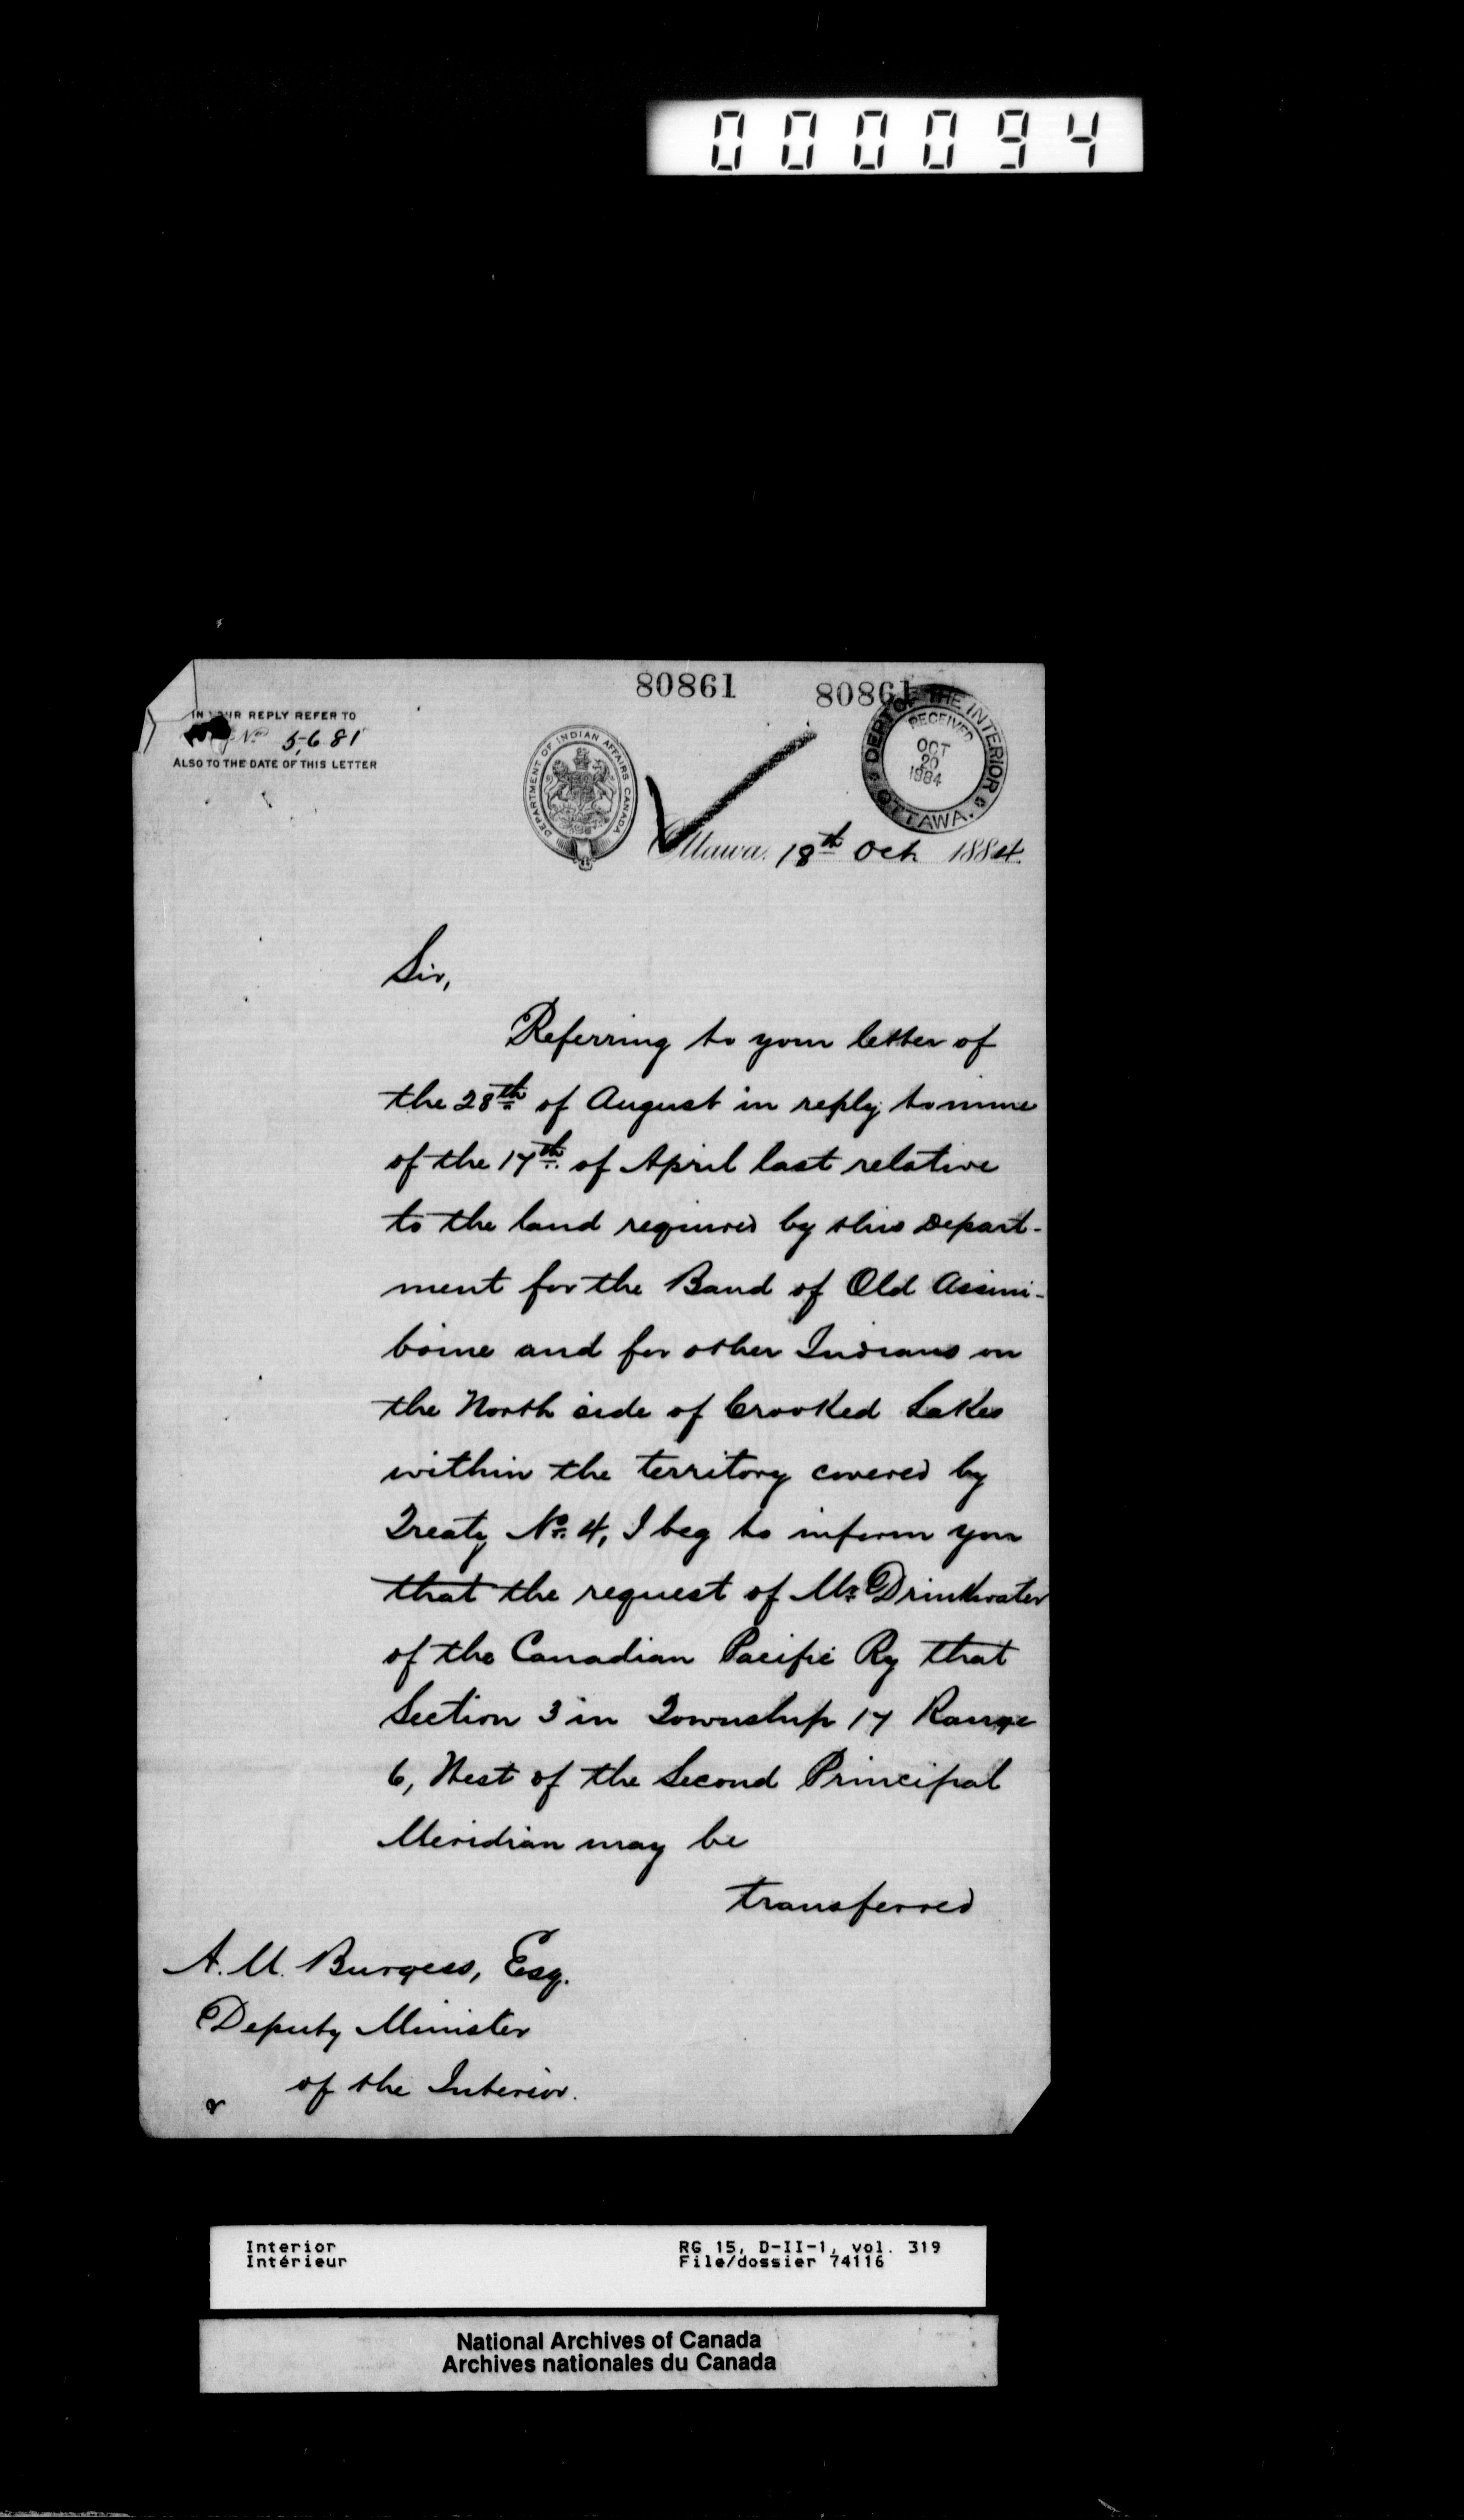 000094
80861 80861
IN YOUR REPLY REFER TO
No 5,681
ALSO TO THE DATE OF THIS LETTER
DEPARTMENT OF INDIAN AFFAIRS CANADA
DEPT OF THE INTERIOR
RECEIVED
OCT
20
1884
OTTAWA.
Ottawa. 18th Oct 1884.
Sir,
Referring to your letter of
the 28th of August in reply to mine
of the 17th of April last relative
to the land required by this Depart-
ment for the Band of Old Assini-
boine and for other Indians on
the North side of Crooked Lakes
within the territory covered by
Treaty No. 4, I beg to inform you
that the request of Mr Drinkwater
of the Canadian Pacific Ry that
Section 3 in Township 17 Range
6, West of the Second Principal
Meridian may be
transferred
A. M. Burgess, Esq.
Deputy Minister
of the Interior.
Interior RG 15, D-II-1, vol. 319
Intérieur File/dossier 74116
National Archives of Canada
Archives nationales du Canada